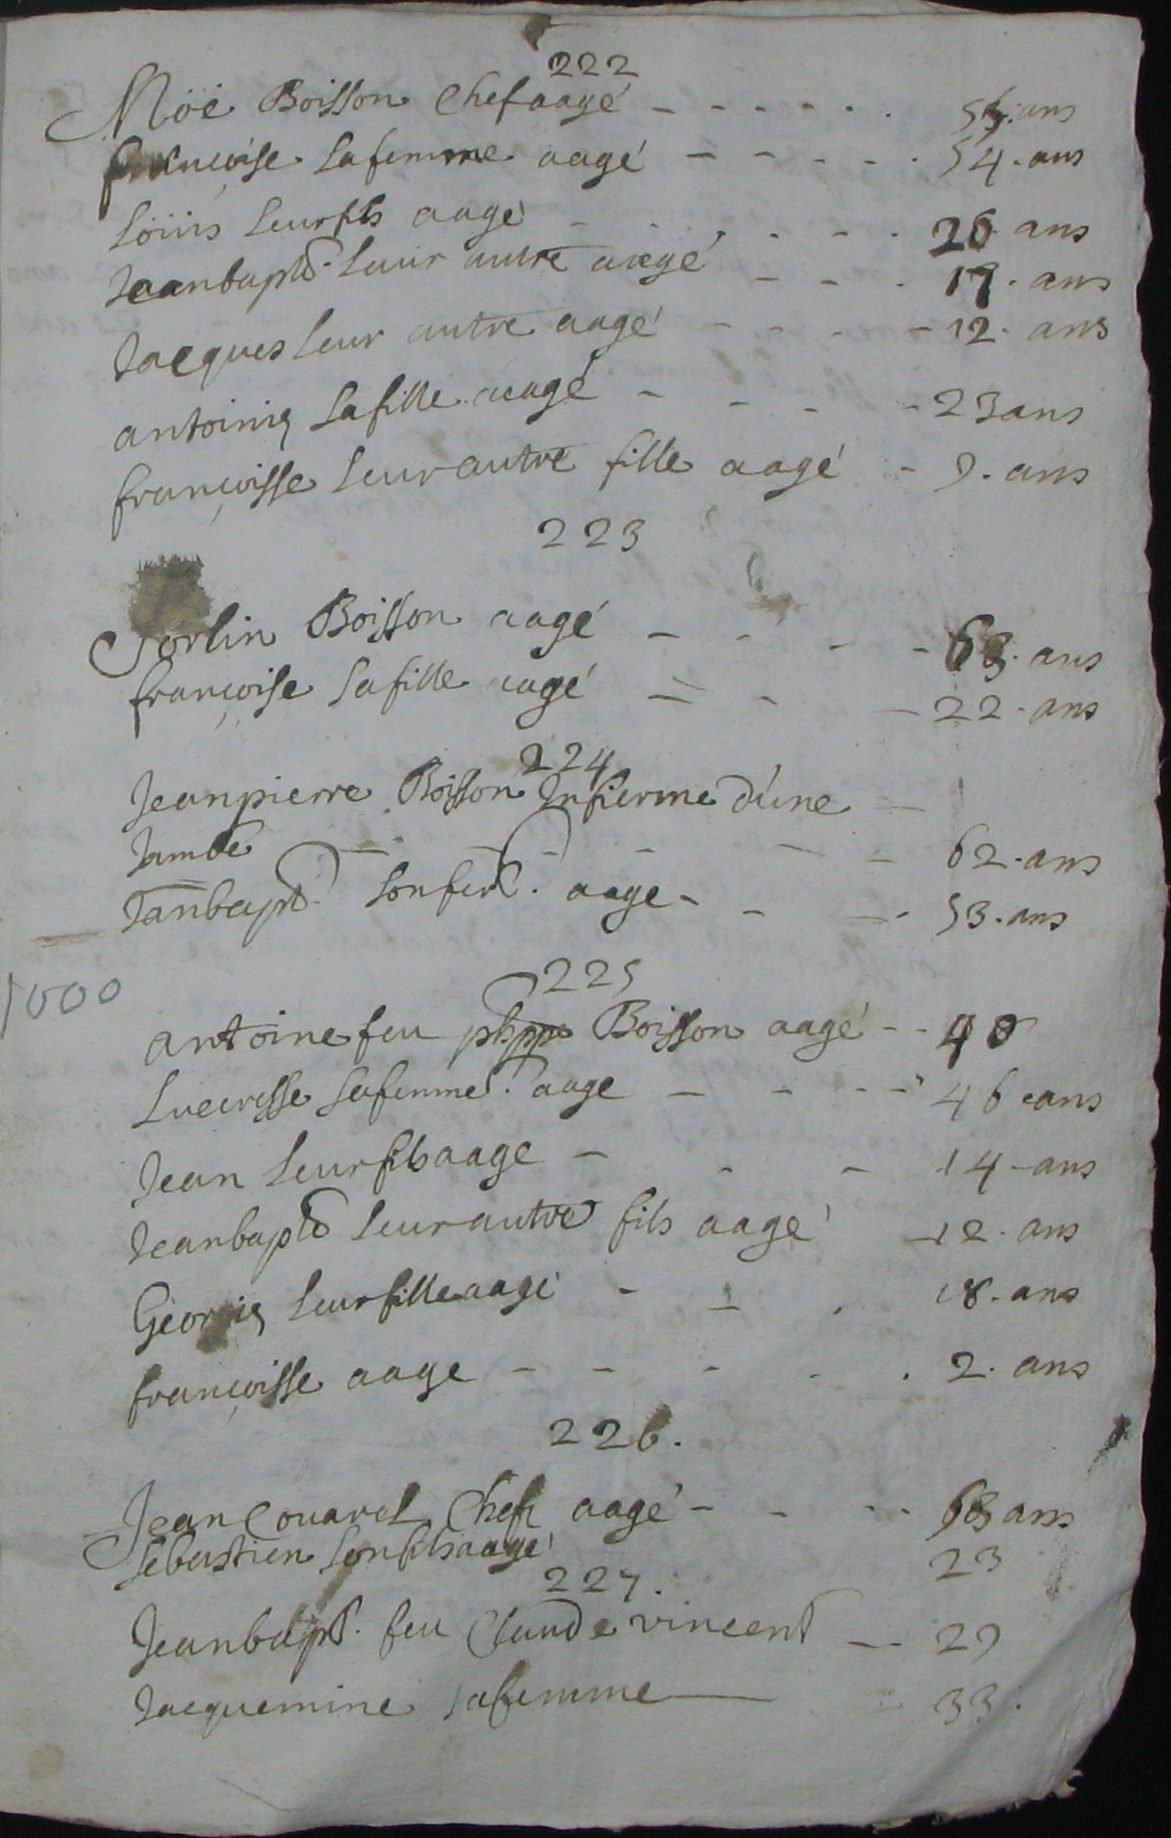 222
Noë Boisson Chef aagé - - - - - 
françoise sa femme aagé - - - - - 54. ans
Loüis leur fils aagé - - - - - 26 ans
Jeanbaptē leur autre aagé - - - 17. ans
Jacques leur autre aagé - - - - 12. ans
antoinie sa fille aagé - - - - 23 ans
françoisse leur autre fille aagé - 9. ans
223
Jorlin Boisson aagé - - - - 63. ans
françoise sa fille aagé - - - 22. ans
224
Jeanpierre Boisson Infierme d'une -
Jambe - - - - - - 62. ans
Janbapt. son frere. aage - - - 53. ans
225
1000
antoine feu phppe Boisson aagé - - 40
Lucresse sa femme. aage - - - - 46 ans
Jean leur fils aage - - - 14 - ans
Jeanbaptē leur autre fils aagé - 12. ans
Georgie leur fille aagé - - . 18. ans
françoisse aage - - - - . 2. ans
226.
Jean Couarel Chefz aagé - - - - 63 ans
Sebastien son fils aagé 23
227.
Jeanbapt. feu Claude vincent - - 29
Jacquemine sa femme - - 33.